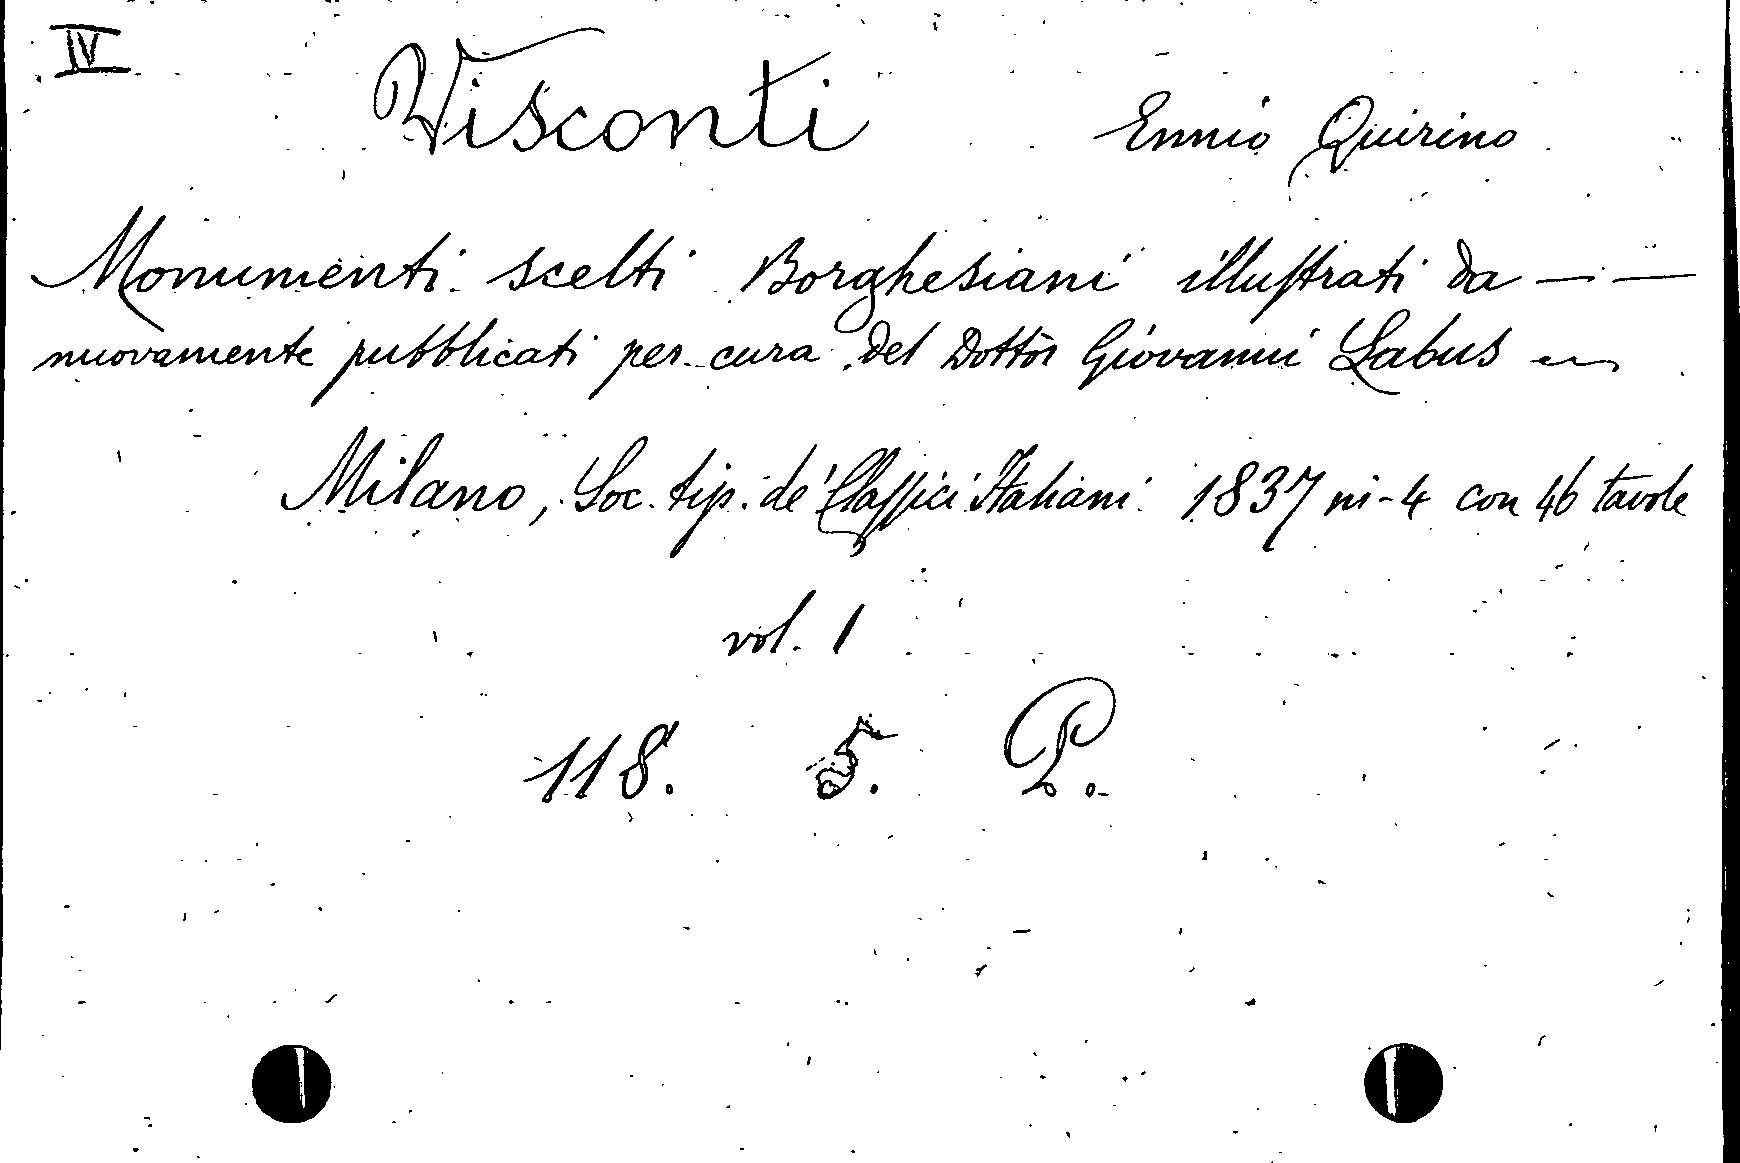 IV
Visconti Ennio Quirino
Monumenti scelti Borghesiani illustrati da — —
nuovamente pubblicati per cura del Dottor Giovanni Labus —
Milano, Soc. tip. de' Classici Italiani 1837 in-4 con 46 tavole
vol. 1
118. 5. P.